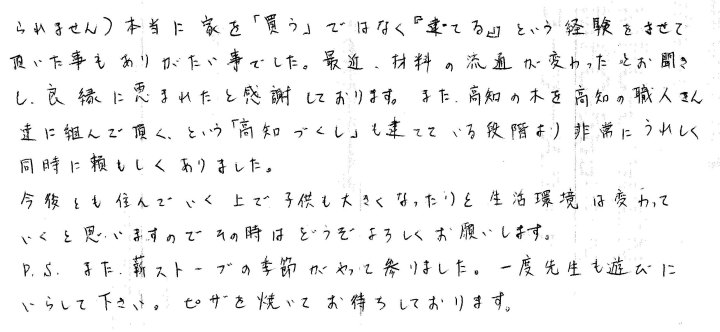 られません)本当に家を「買う」ではなく『建てる』という経験をさせて
頂いた事もありがたい事でした。最近、材料の流通が変わったとお聞き
し、良縁に恵まれたと感謝しております。また、高知の木を高知の職人さん
達に組んで頂く、という「高知づくし」も建てている段階より非常にうれしく
同時に頼もしくありました。
今後とも住んでいく上で子供も大きくなったりと生活環境は変わって
いくと思いますのでその時はどうぞよろしくお願いします。
P.S. また、薪ストーブの季節がやって参りました。一度先生も遊びに
いらして下さい。ピザを焼いてお待ちしております。